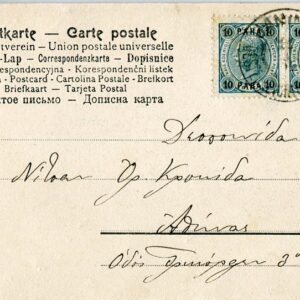 tkarte — Carte postale
tverein - Union postale universelle
-Lap - Correspondenzkarte - Dopisnice
espondencyjna - Korespondenční listek
n - Postcard - Cartolina Postale - Brefkort
Briefkaart - Tarjeta Postal
тое письмо - Дописна карта
10 PARA 10
10 PARA 10
Δεσποινίδα
Νίτσαν Χρ. Κρονίδα
Ἀθήνας
Ὁδός